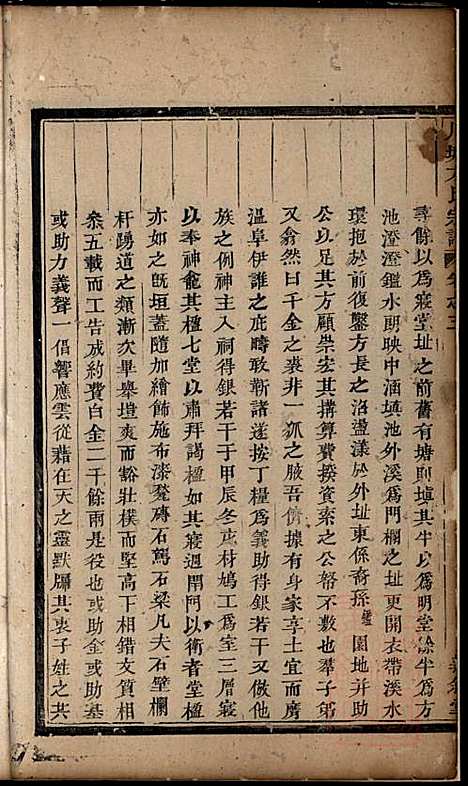 尋餘以爲寢堂址之前舊有塘則塡其半以爲明堂餘半爲方
池澄澄鑑水朗映中涵塡池外溪爲門欄之址更開衣帶溪水
環抱於前復鑿方長之沼盪漾於外址東係裔孫鑑園地並助
公以足其方顧崇宏其搆算費揆資索之公帑不數也羣子弟
又翕然曰千金之裘非一狐之腋吾儕據有身家享土宜而膺
溫阜伊誰之庇疇敢靳諸遂按丁糧爲義助得銀若干又倣他
族之例神主入祠得銀若干于甲辰冬庀材鳩工爲室三層寢
以奉神龕其楹七堂以肅拜謁楹如其寢週閈門以衛者堂楹
亦如之旣垣蓋隨加繪飾施布漆甃磚石鴐石梁凡夫石壁欄
杆踴道之類漸次畢舉塏爽而豁壯樸而堅高相錯支質相
叅五載而工告成約費白金二千餘兩是役也或捐或助基
或助力義聲一倡響應雲從藉在天之靈默牖其衷子姓之共
氏宗譜
卷之三